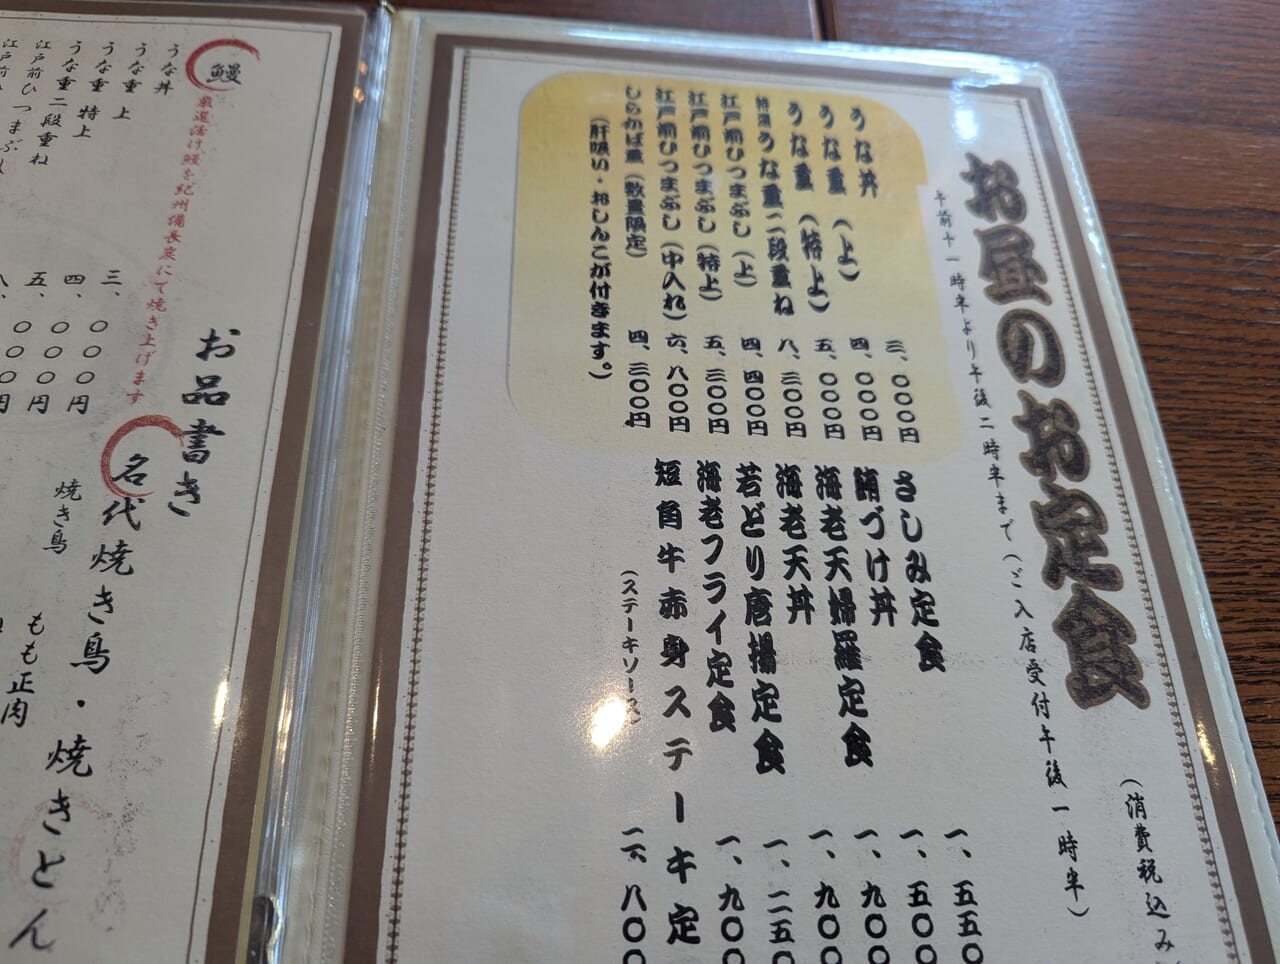 お昼のお定食
(消費税込み
午前十一時半より午後二時半まで(ご入店受付午後一時半)
うな丼 三、〇〇〇円
うな重(上) 四、〇〇〇円
うな重(特上) 五、〇〇〇円
特選うな重二段重ね 八、三〇〇円
江戸前ひつまぶし(上) 四、四〇〇円
江戸前ひつまぶし(特上) 五、三〇〇円
江戸前ひつまぶし(中入れ) 六、八〇〇円
しらかば重(数量限定) 四、三〇〇円
(肝吸い・おしんこが付きます。)
さしみ定食 一、五五〇
鮪づけ丼 一、五〇〇
海老天婦羅定食 一、九〇〇
海老天丼 一、九〇〇
若どり唐揚定食 一、二五〇
海老フライ定食 一、九〇〇
短角牛赤身ステーキ定
(ステーキソース) 八〇〇
お品書き
鰻
厳選活け鰻を紀州備長炭にて焼き上げます
うな丼 三、〇〇〇円
うな重 上 四、〇〇〇円
うな重 特上 五、〇〇〇円
うな重二段重ね 八、
江戸前ひつまぶし
江戸前ひ
名代焼き鳥・焼きとん
焼き鳥
もも正肉